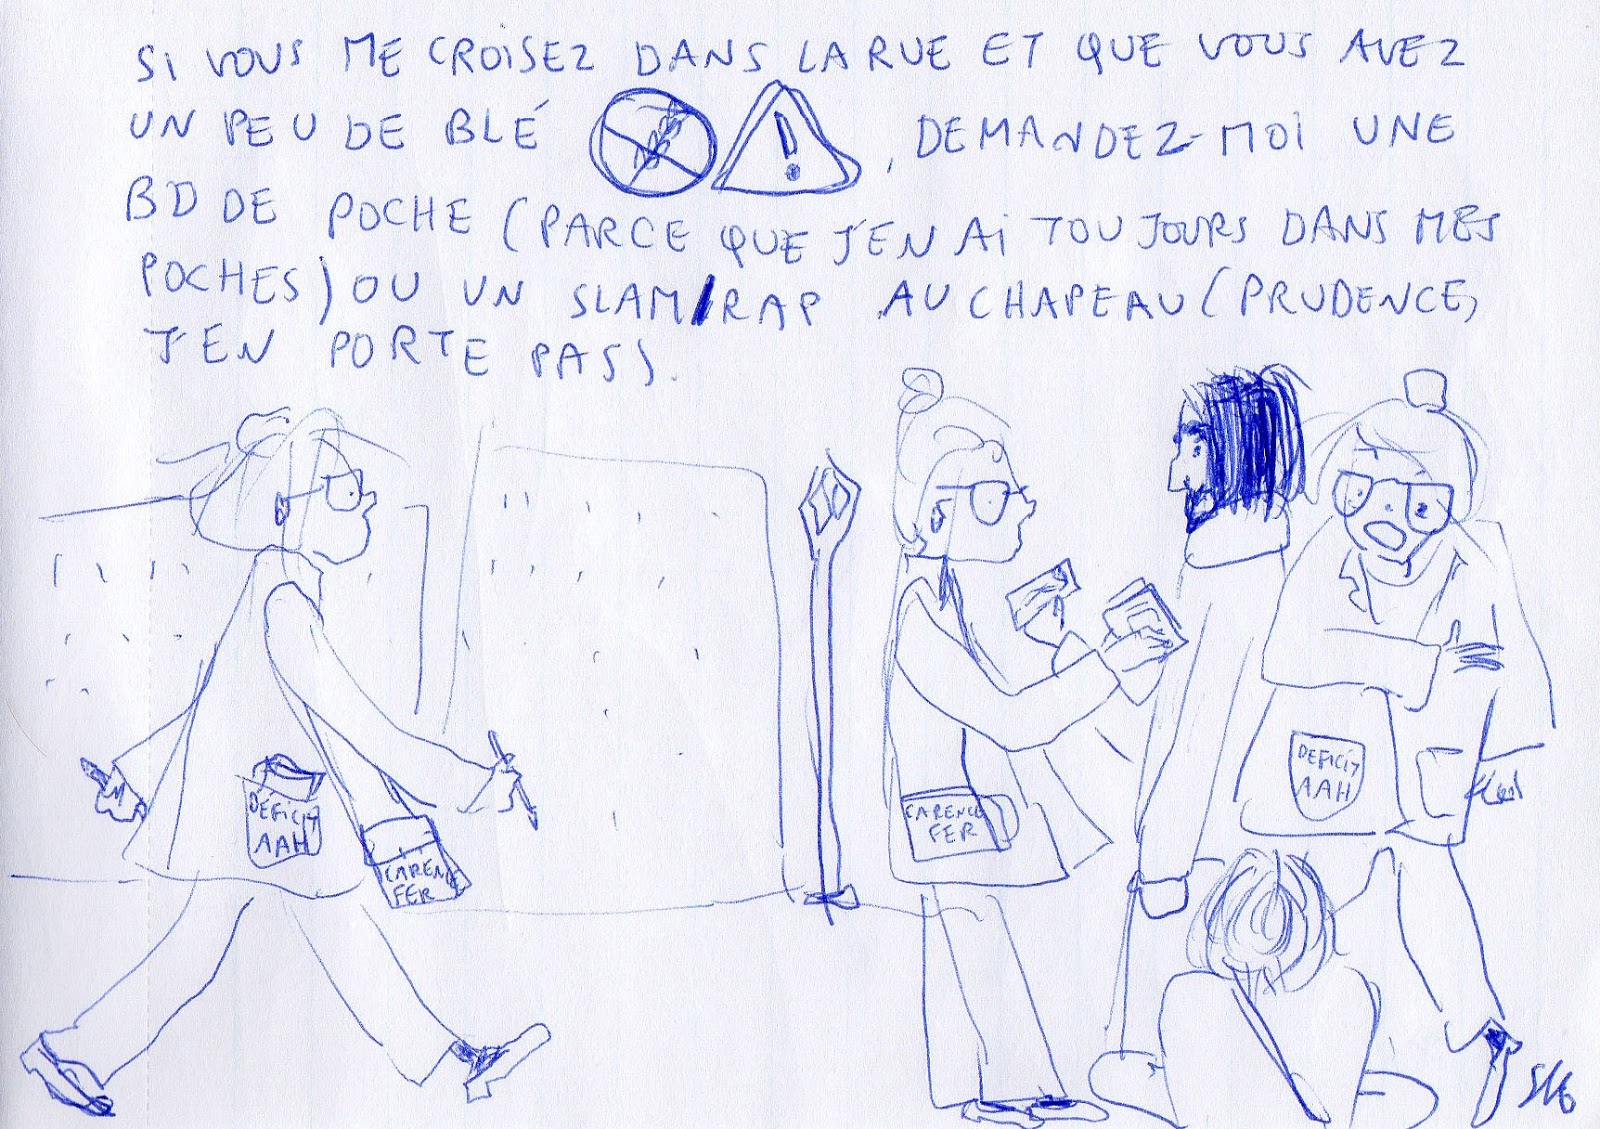 SI VOUS ME CROISEZ DANS LA RUE ET QUE VOUS AVEZ
UN PEU DE BLÉ !, DEMANDEZ-MOI UNE
BD DE POCHE (PARCE QUE J'EN AI TOUJOURS DANS MES
POCHES) OU UN SLAM/RAP AU CHAPEAU (PRUDENCE,
J'EN PORTE PAS).
DÉFICIT
AAH
CARENCE
FER
CARENCE
FER
DEFICIT
AAH